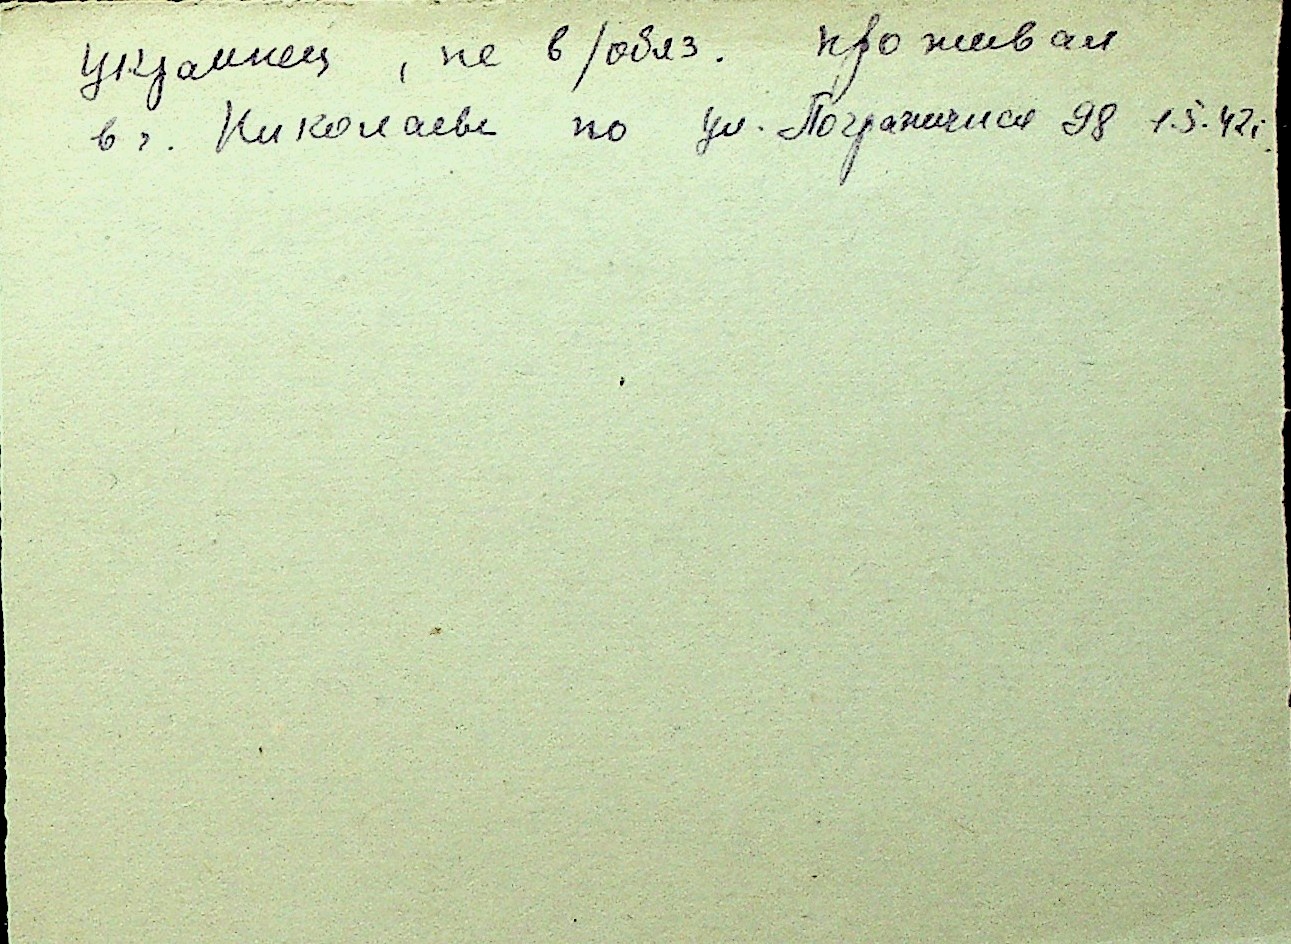 украинец, не в/обяз. проживал
в г. Николаеве по ул. Пограничная 98 1.5.42г.